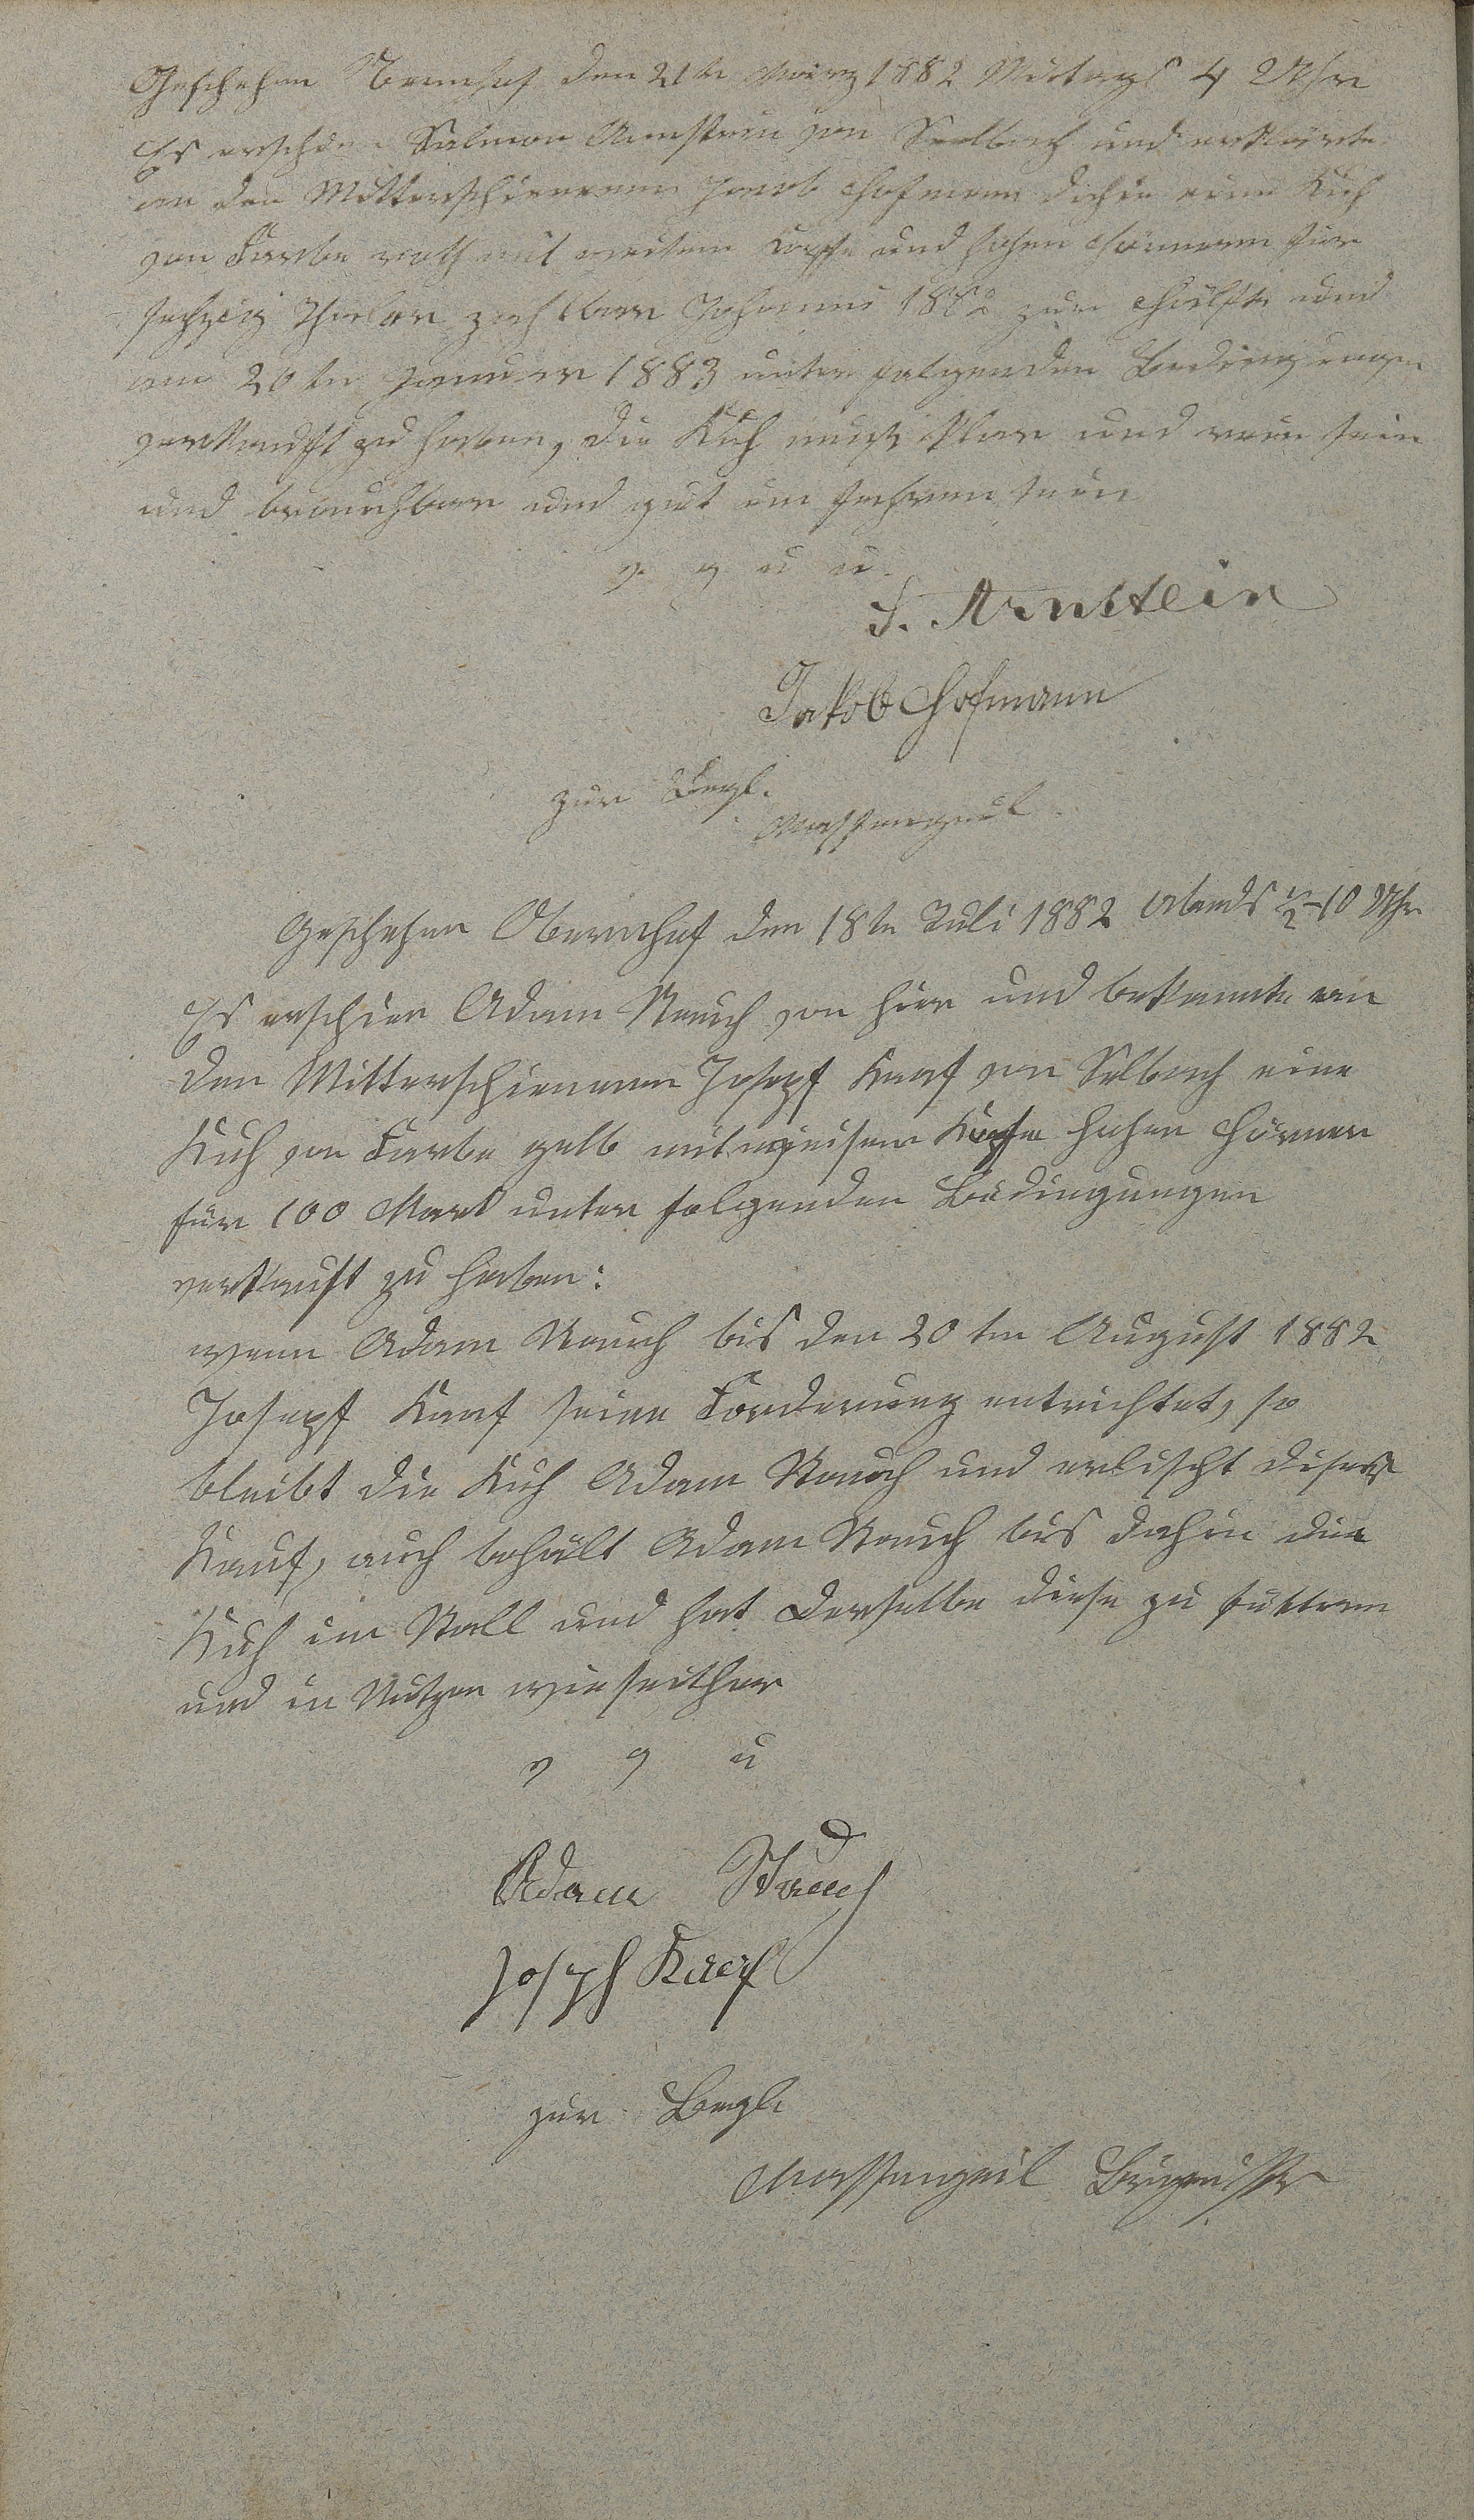 Geschehen den 21ten März 1882 Mittags 4 Uhr
Es erschien Salmon Arnstein von Seelbach und erklärte
an den Mitterschienenen Jacob Hofmann dahier eine Kuh
von Farbe roth mit weisem Kopfe und hohen Hörnern für
sechzig Thaler zahlbar Johanni 1882 zur Hälfte und
am 20ten Januar 1883 unter folgenden Bedingungen
verkauft zu haben, die Kuh muß klar und rein sein
und brauchbar und gut im fahren sein
v. g u u.
S. Arnstein
Jakob Hofmann
zur Begl.
Massengeil
Geschehen Obernhof den 18ten Juli 1882 Abends ½-10 Uhr
Es erschien Adam Strauch von hier und bekannte an
den Mitterschienenen Josepf Karf von Selbach eine
Kuh von Farbe gelb mit weisem Kopfe hohen Hörner
für 100 Mark unter folgenden Bedingungen
verkauft zu haben:
wenn Adam Strauch bis den 20ten August 1882
Josepf Karf seine Forderung entrichtet, so
bleibt die Kuh Adam Strauch und erlischt dieser
Kauf, auch behält Adam Strauch bis dahin die
Kuh im Stall und hat Derselbe diese zu füttern
und in Nutzen wie seither
v g u
Adam Strauch
Joseph Karf
zur Begl.
Massengeil Bürgmstr